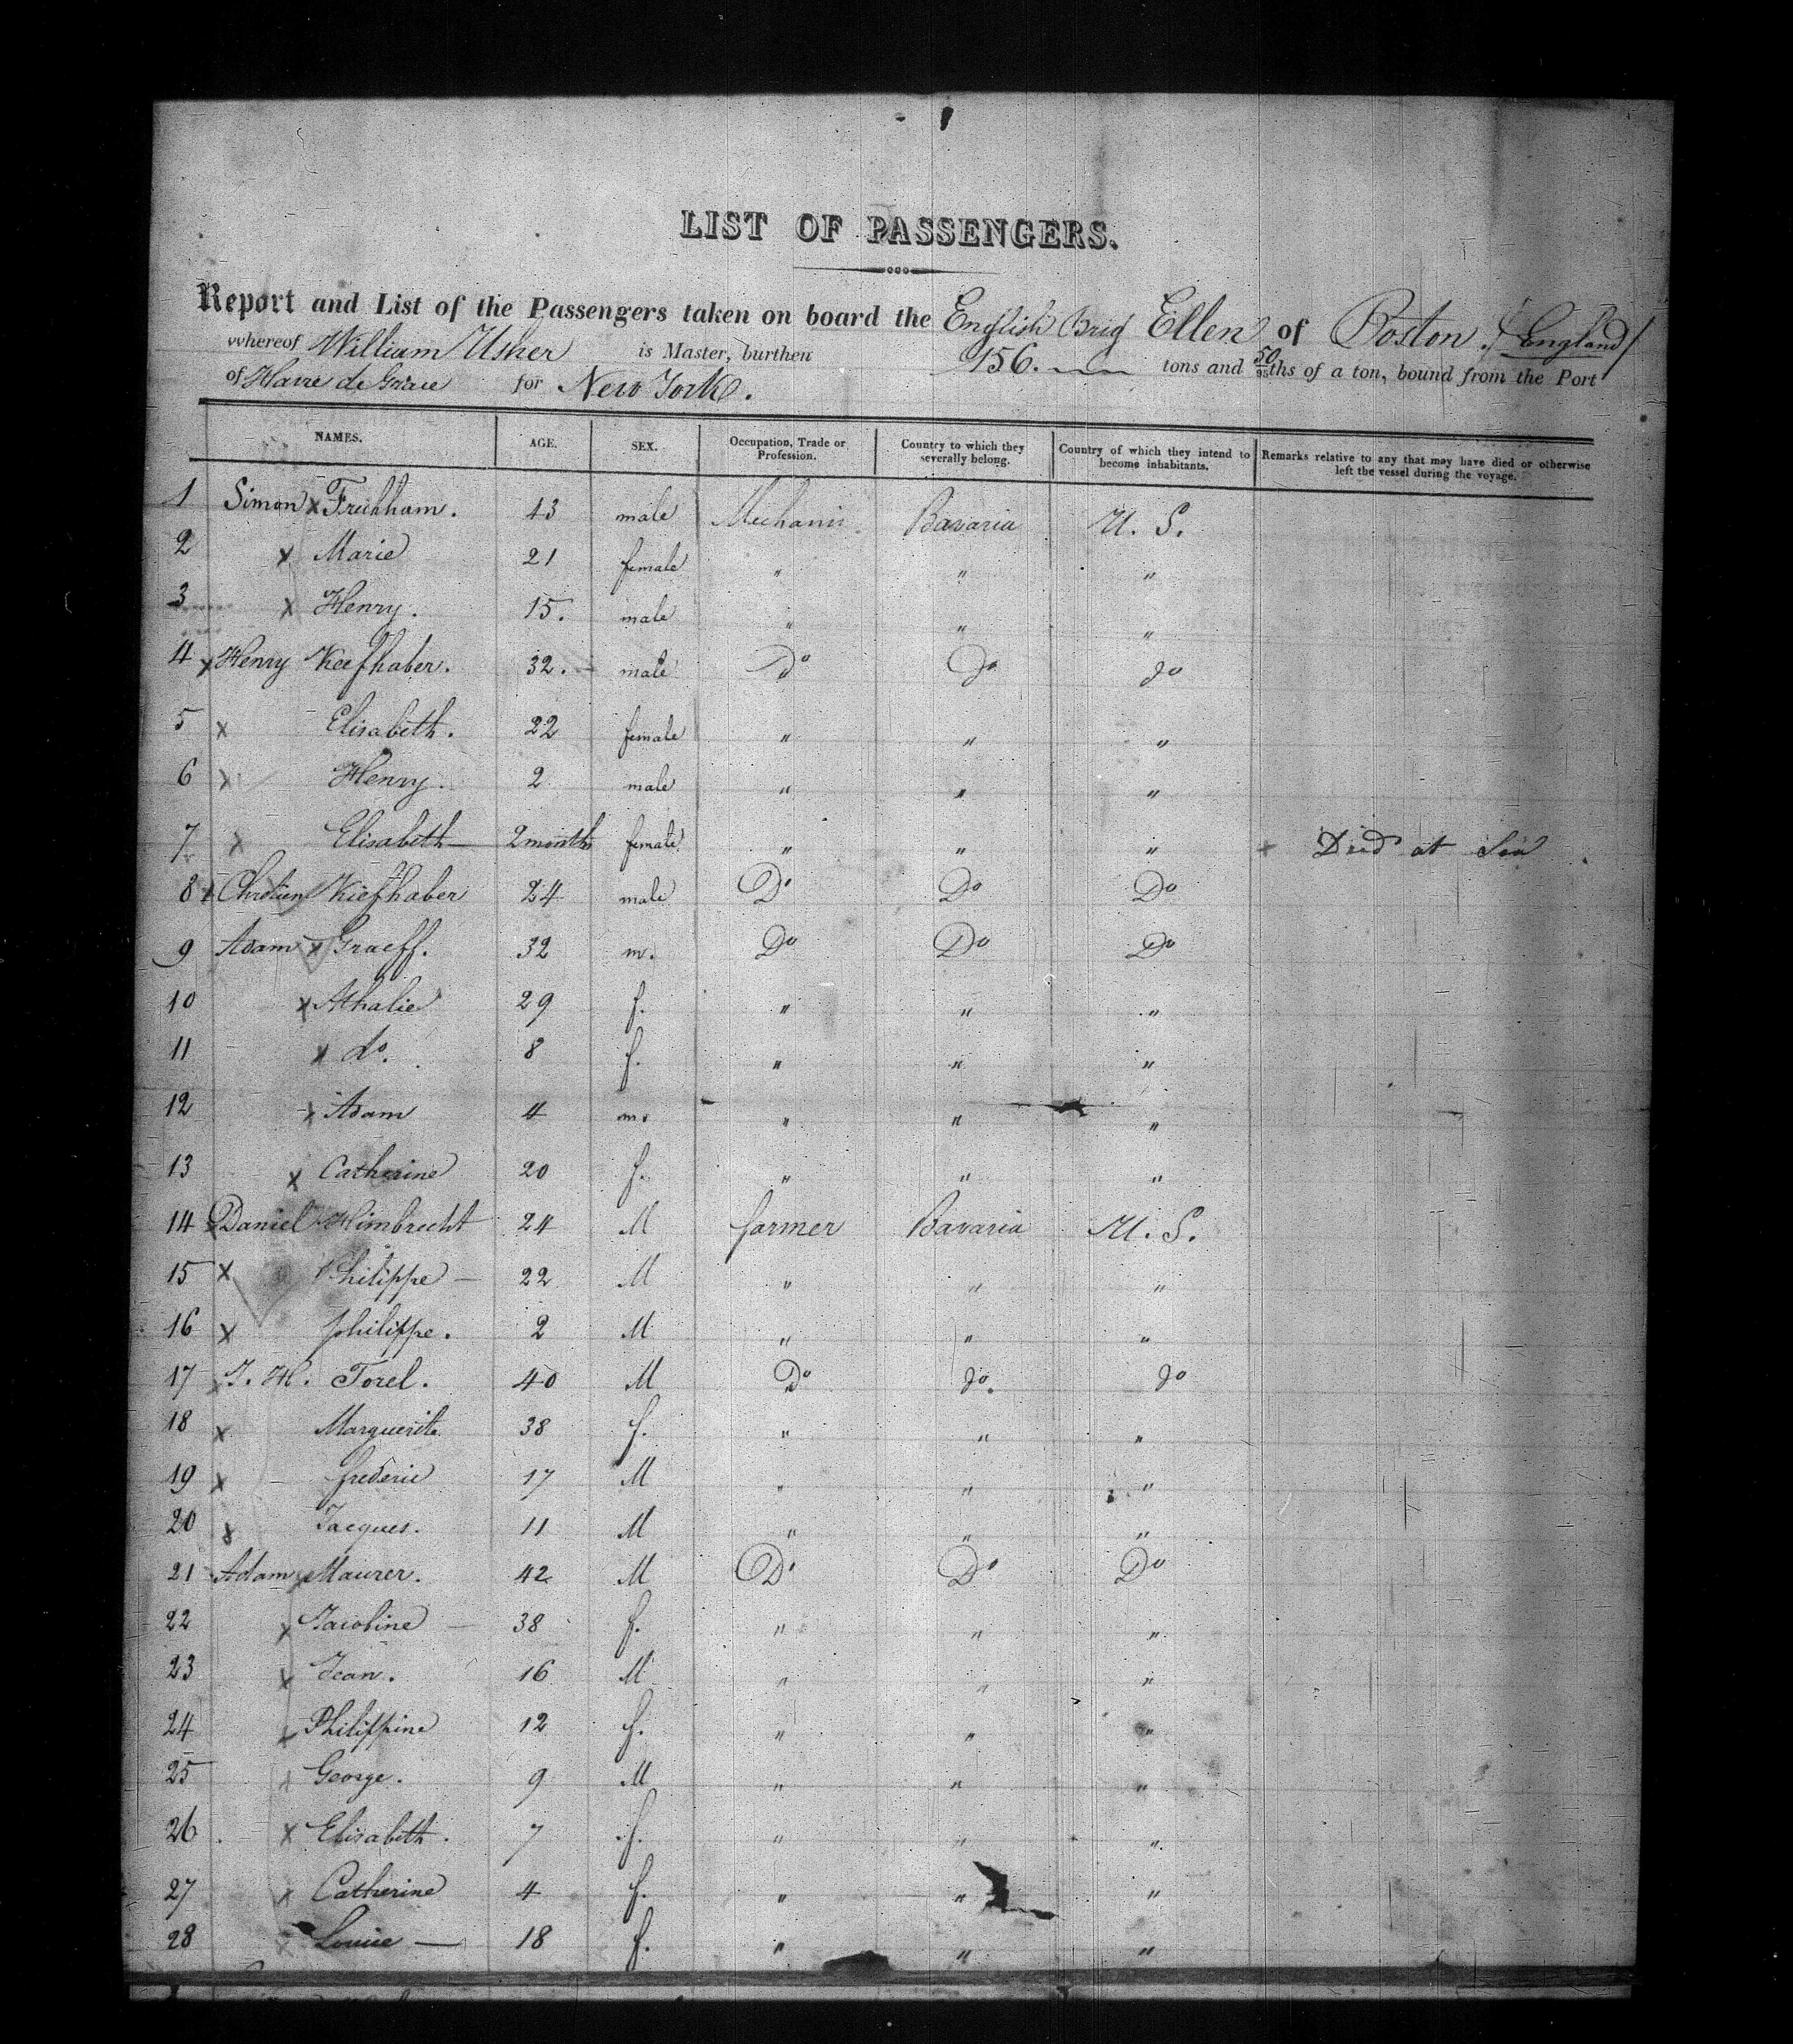 LIST OF PASSENGERS.
Report and List of the Passengers taken on board the English Brig Ellen of Boston / England /
whereof William Usher is Master, burthen 156. tons and 50/95ths of a ton, bound from the Port
of Havre de Grace for New York.
NAMES. AGE. SEX. Occupation, Trade or Profession. Country to which they severally belong. Country of which they intend to become inhabitants. Remarks relative to any that may have died or otherwise left the vessel during the voyage.
1 Simon x 43 male Mechanic Bavaria U. S.
2 x Marie 21 female " " "
3 x Henry. 15. male " " "
4 x Henry Kiefhaber. 32. male Do do do
5 x Elisabeth. 22 female " " "
6 x Henry. 2 male " " "
7 x Elisabeth — 2 months female " " " + Died at Sea
8 x Chretien Kiefhaber 24 male Do Do Do
9 Adam x Graeff. 32 m. Do Do Do
10 x Athalie 29 f. " " "
11 x do. 8 f. " " "
12 x Adam 4 m. " " "
13 x Catherine 20 f. " " "
14 Daniel Himbrecht 24 M farmer Bavaria U. S.
15 x Philippe — 22 M " " "
16 x philippe. 2 M " " "
17 x J. H. Torel. 40 M Do do. do
18 x Marguerite 38 f. " " "
19 x frederic 17 M " " "
20 x Jacques. 11 M " " "
21 Adam x Maurer. 42 M Do Do Do
22 x Jacobine — 38 f. " " "
23 x Jean. 16 M " " "
24 x Philippine 12 f. " " "
25 x George. 9 M " " "
26 x Elisabeth. 7 f. " " "
27 x Catherine 4 f. " " "
28 x Louise — 18 f. " " "